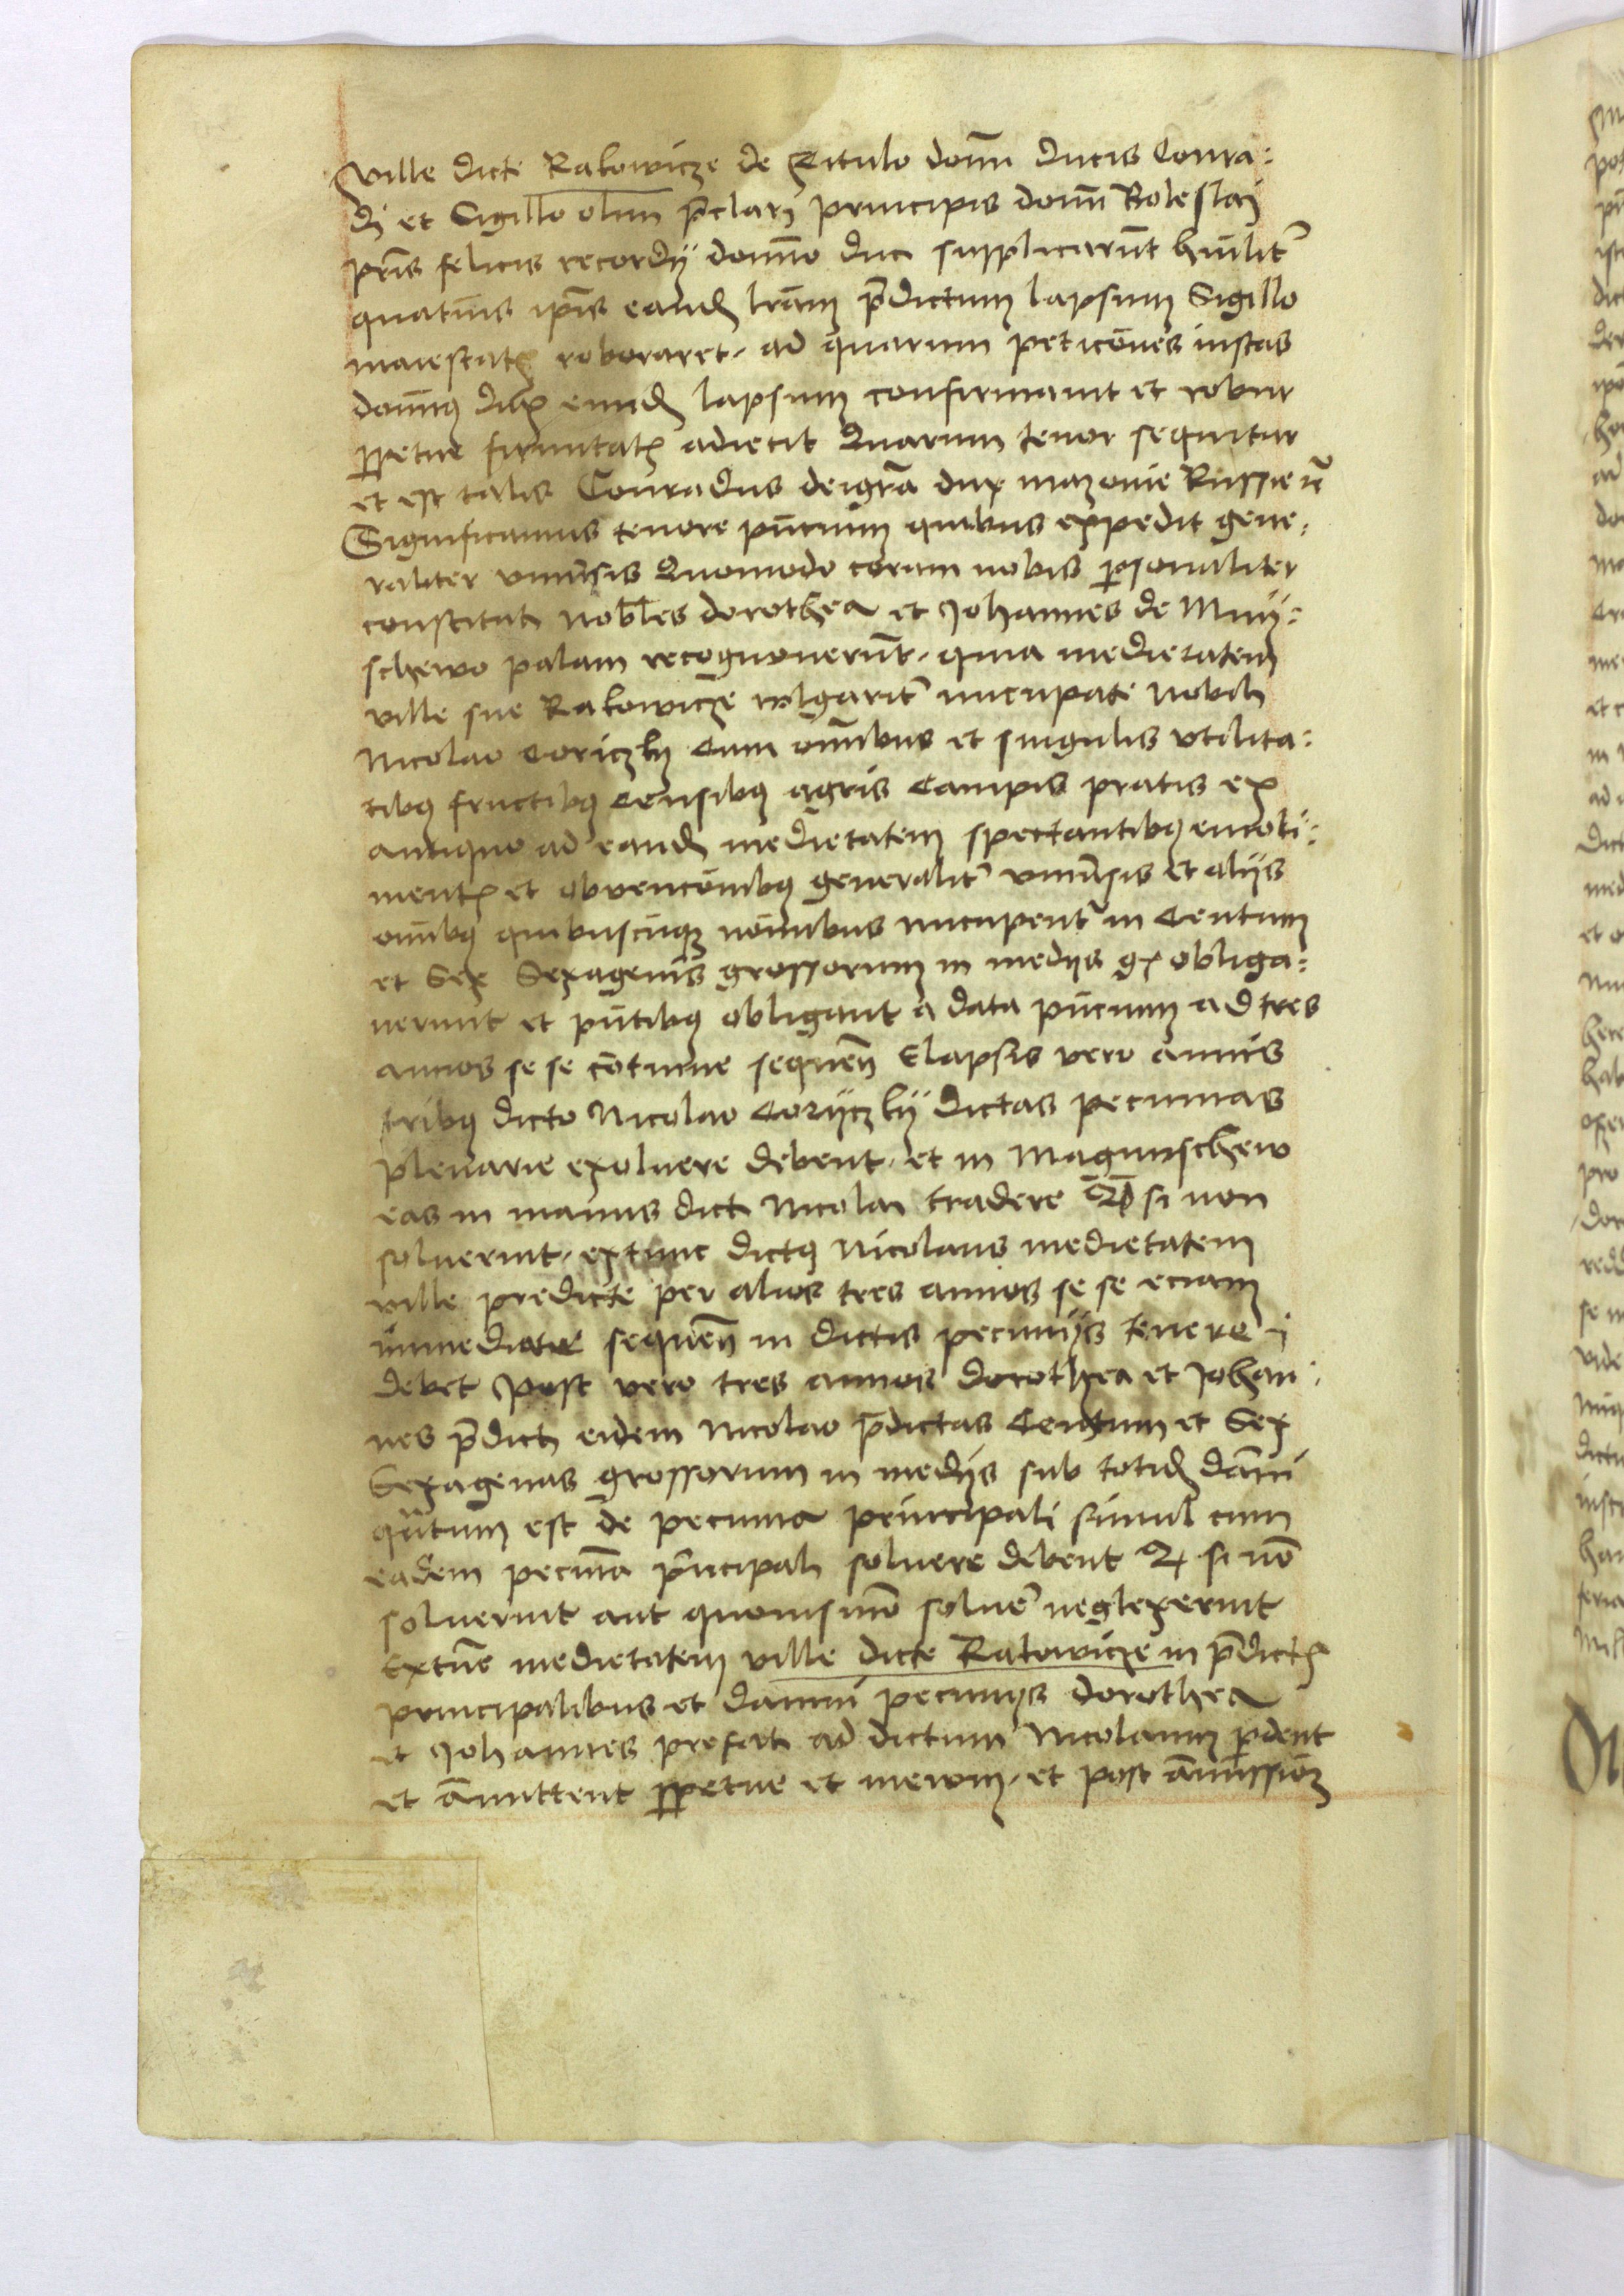 ville dicte Rakowicze de Titulo domī ducis Conra:
di et Sigillo olim p̄clari principis domī Boleslai
pr̄is felicis recordÿ domīo duci supplicarūt hūilit᷑
quatin̄s ip̄is eandē lrām p̄dictum lapsum Sigillo
maiestatꝭ roboraret, ad quarum peticōnes iustas
domīꝰ dux eundē lapsum confirmauit et robur
ꝑpetue firmitatꝭ adiecit Quarum tenor sequitur
et est talis Conradus deigrā dux mazouie Russie rc̄
Significamus tenore pn̄cium quibus expedit gene:
raliter vniūsis Quomodo coram nobis ꝑsonaliter
constituti nobiles dorothea et Johannes de Mnÿ:
schewo palam recognouerūt, quia medietatem
ville sue Rakowicze wlgarit᷑ nūcupate nobili
Nicolao Coriczky Cum om̄ibus et singulis vtilita:
tibꝰ fructibꝰ Censibꝰ agris Campis pratis ex
antiquo ad eandē medietatem spectantibꝰ emoli:
mentꝭ et obuencōnibꝰ generalit᷑ vniūsis et alÿs
om̄ibꝰ quibuscūqꝫ nōibus nūcupent᷑ in Centum
et Sex Sexagenis grossorum in medÿs gꝭ obliga:
uerunt et pn̄tibꝰ obligant a data pn̄cium ad tres
annos se se cōtinue sequen̄ Elapsis vero annis
tribꝰ dicto Nicolao Corÿczkÿ dictas pecunias
plenarie exoluere debent, et in Magnuschew
eas in manus dicti Nicolai tradere Qd̄ si non
soluerint, extunc dictꝰ Nicolaus medietatem
ville predicte per alios tres annos se se eciam
immediate sequen̄ in dictis pecunÿs tenere
debet Post vero tres annos dorothea et Johan:
nes p̄dicti eidem Nicolao p̄dictas Centum et Sex
Sexagenas grossorum in medÿs sub totidē dāmi
quātum est de pecunia principali simul cum
eadem pecunia p̄ncipali soluere debent Qd̄ si nō
soluerint aut quouismō soluē neglexerint
Extūc medietatem ville dicte Rakowicze in p̄dictꝭ
principalibus et damni pecunÿs dorothea
et Johannes prefati ad dictum Nicolaum ꝑdent
et āmittent ꝑpetue et in ewm, et post āmissiōꝫ